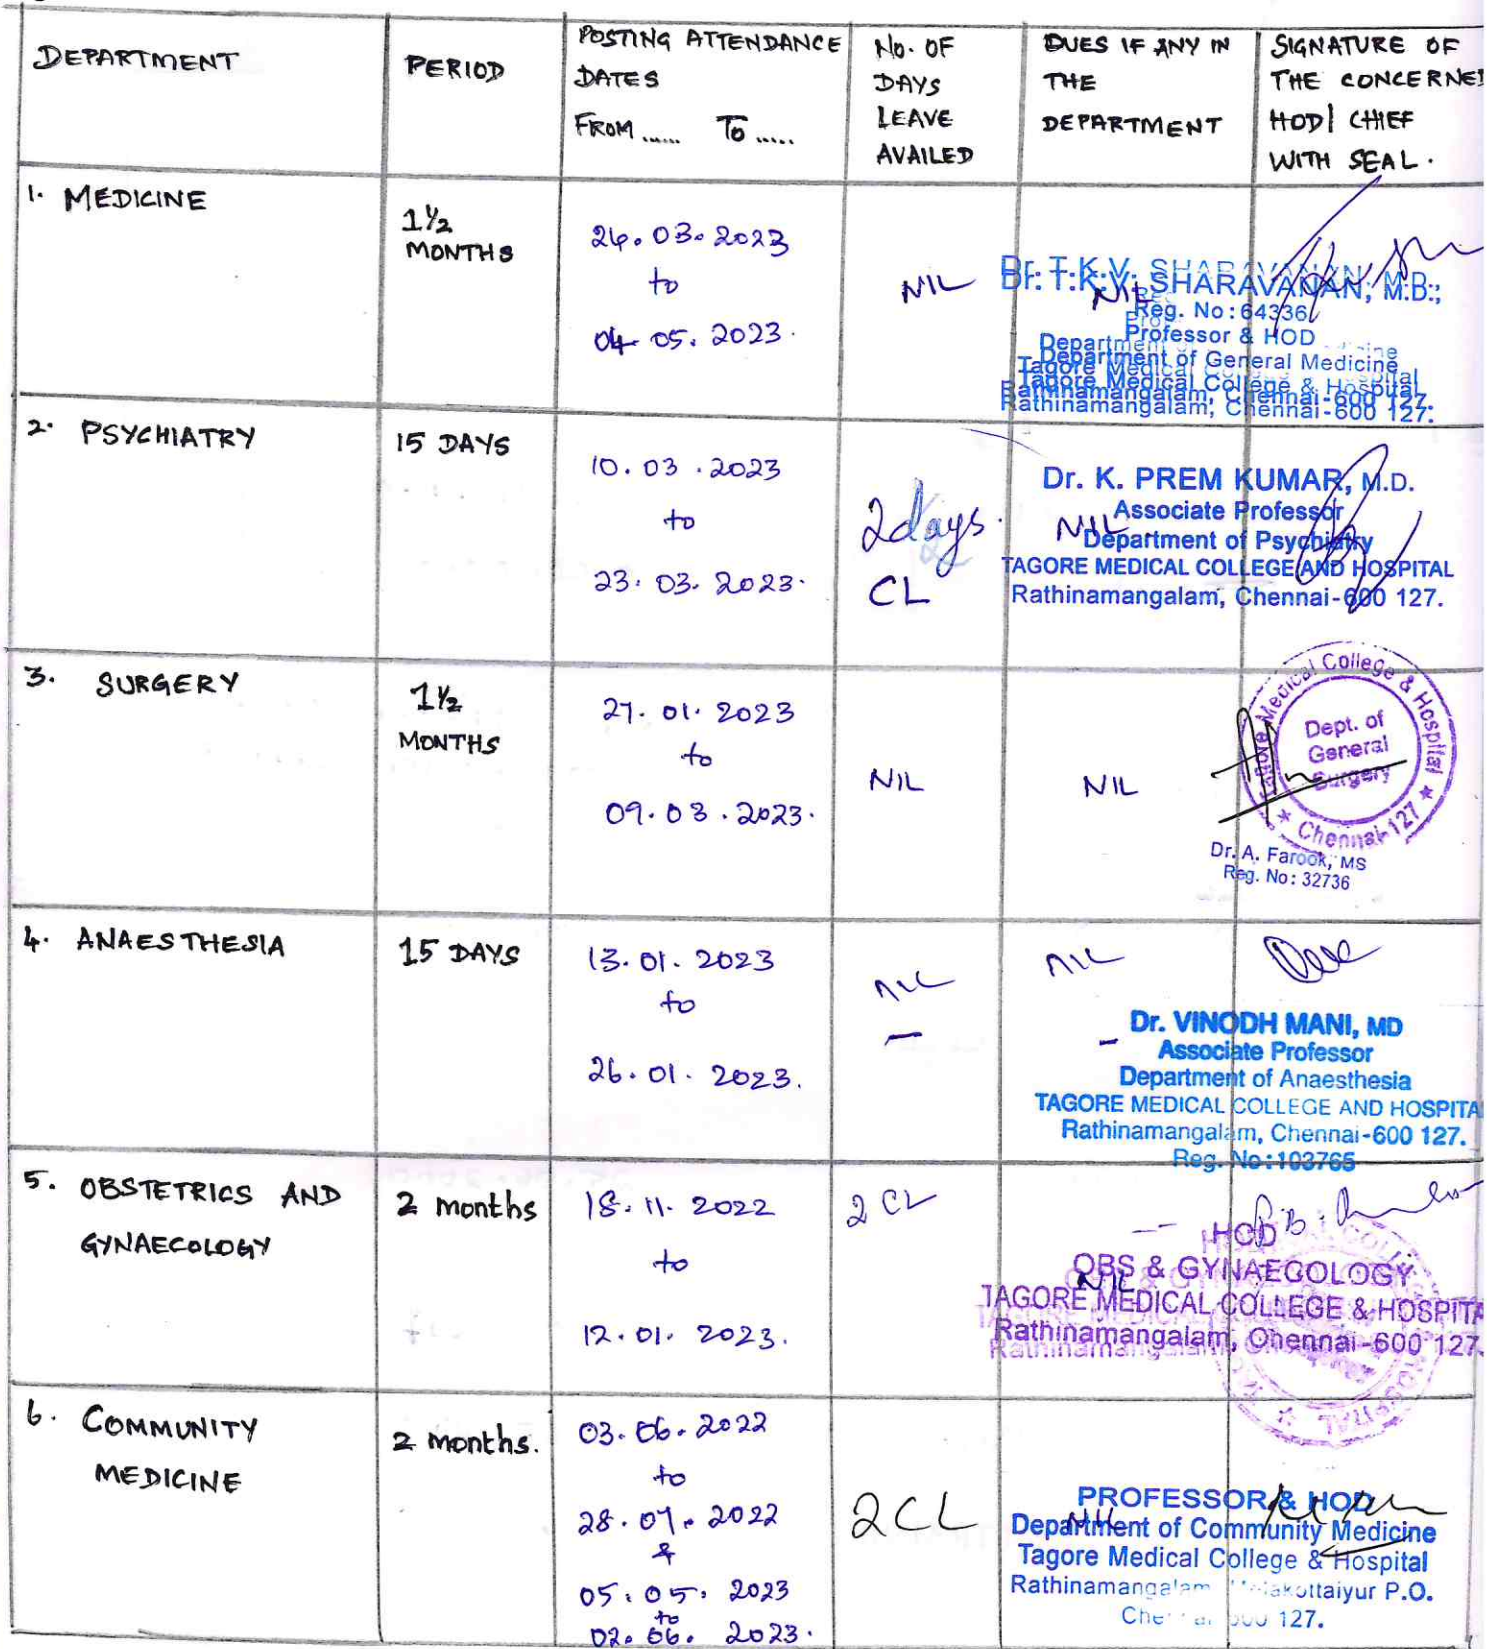 DEPARTMENT
PERIOD
POSTING ATTENDANCE
DATES
FROM ...... TO .....
No. OF
DAYS
LEAVE
AVAILED
DUES IF ANY IN
THE
DEPARTMENT
SIGNATURE OF
THE CONCERNED
HOD/ CHIEF
WITH SEAL.
1. MEDICINE
1½
MONTHS
24.03.2023
to
04.05.2023.
NIL
NIL
Dr. T.K.V. SHARAVANAN, M.D.,
Reg. No: 64336
Professor & HOD
Department of General Medicine
Tagore Medical College & Hospital
Rathinamangalam, Chennai-600 127.
2. PSYCHIATRY
15 DAYS
10.03.2023
to
23.03.2023.
2days.
CL
NIL
Dr. K. PREM KUMAR, M.D.
Associate Professor
Department of Psychiatry
TAGORE MEDICAL COLLEGE AND HOSPITAL
Rathinamangalam, Chennai-600 127.
3. SURGERY
1½
MONTHS
27.01.2023
to
09.03.2023.
NIL
NIL
Tagore Medical College & Hospital
Dept. of
General
Surgery
Chennai-127
Dr. A. Farook, MS
Reg. No: 32736
4. ANAESTHESIA
15 DAYS
13.01.2023
to
26.01.2023.
NIL
–
NIL
–
Dr. VINODH MANI, MD
Associate Professor
Department of Anaesthesia
TAGORE MEDICAL COLLEGE AND HOSPITA
Rathinamangalam, Chennai-600 127.
Reg. No:103765
5. OBSTETRICS AND
GYNAECOLOGY
2 months
18.11.2022
to
12.01.2023.
2 CL
NIL
HOD
OBS & GYNAECOLOGY
TAGORE MEDICAL COLLEGE & HOSPITA
Rathinamangalam, Chennai-600 127.
6. COMMUNITY
MEDICINE
2 months.
03.06.2022
to
28.07.2022
&
05.05.2023
to
02.06.2023.
2CL
NIL
PROFESSOR & HOD
Department of Community Medicine
Tagore Medical College & Hospital
Rathinamangalam, Melakottaiyur P.O.
Chennai 600 127.